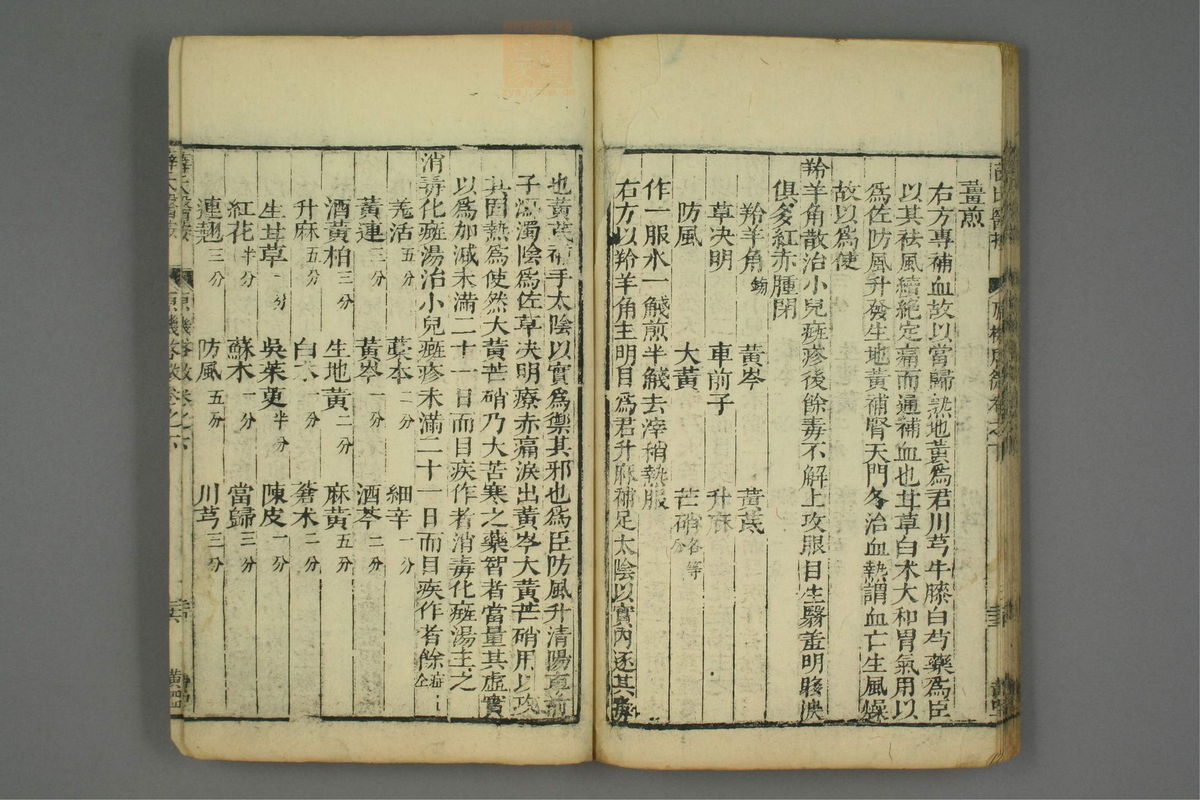 薑煎
右方專補血故以當歸熟地黃爲君川芎牛膝白芍藥爲臣
以其袪風續絕定痛而通補血也甘草白朮大和胃氣用以
爲佐防風升發生地黃補腎天門冬治血熱謂血亡生風燥
故以爲使
羚羊角散治小兒癍疹後餘毒不解上攻眼目生翳羞明眵淚
俱多紅赤腫閉
羚羊角鎊 黃芩 黃芪
草决明 車前子 升麻
防風 大黃 芒硝各等分
作一服水一觥煎半觥去滓稍熱服
右方以羚羊角主明目爲君升麻補足太陰以實內逐其
也黃芪補手太陰以實爲禦其邪也爲臣防風升清陽車前
子瀉濁陰爲佐草决明療赤痛淚出黃芩大黃芒硝用以攻
其固熱爲使然大黃芒硝乃大苦寒之藥智者當量其虛實
以爲加減未滿二十一日而目疾作者消毒化癍湯主之
消毒化癍湯治小兒癍疹未滿二十一日而目疾作者餘
羌活五分 藁本二分 細辛一分
黃連三分 黃芩一分 酒芩二分
酒黃柏三分 生地黃二分 麻黃五分
升麻五分 白朮一分 蒼朮二分
生甘草一分 吳茱萸半分 陳皮一分
紅花半分 蘇木一分 當歸三分
連翹三分 防風五分 川芎三分